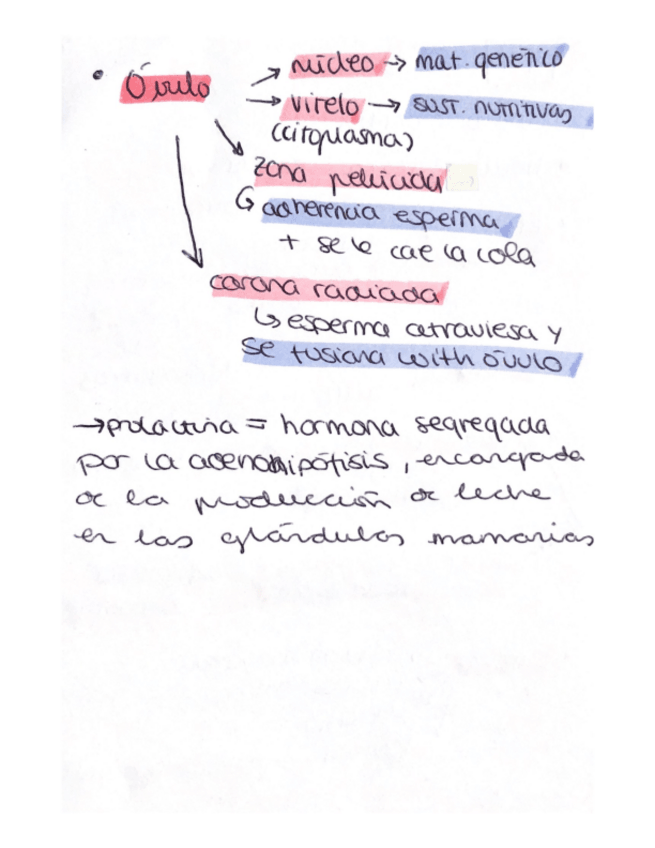 • Óvulo → núcleo → mat. genético
→ vitelo → sust. nutritivas
(citoplasma)
zona pelúcida
↳ adherencia esperma
+ se le cae la cola
corona radiada
↳ esperma atraviesa y
se fusiona with óvulo
→ prolactina = hormona segregada
por la adenohipófisis, encargada
de la producción de leche
en las glándulas mamarias